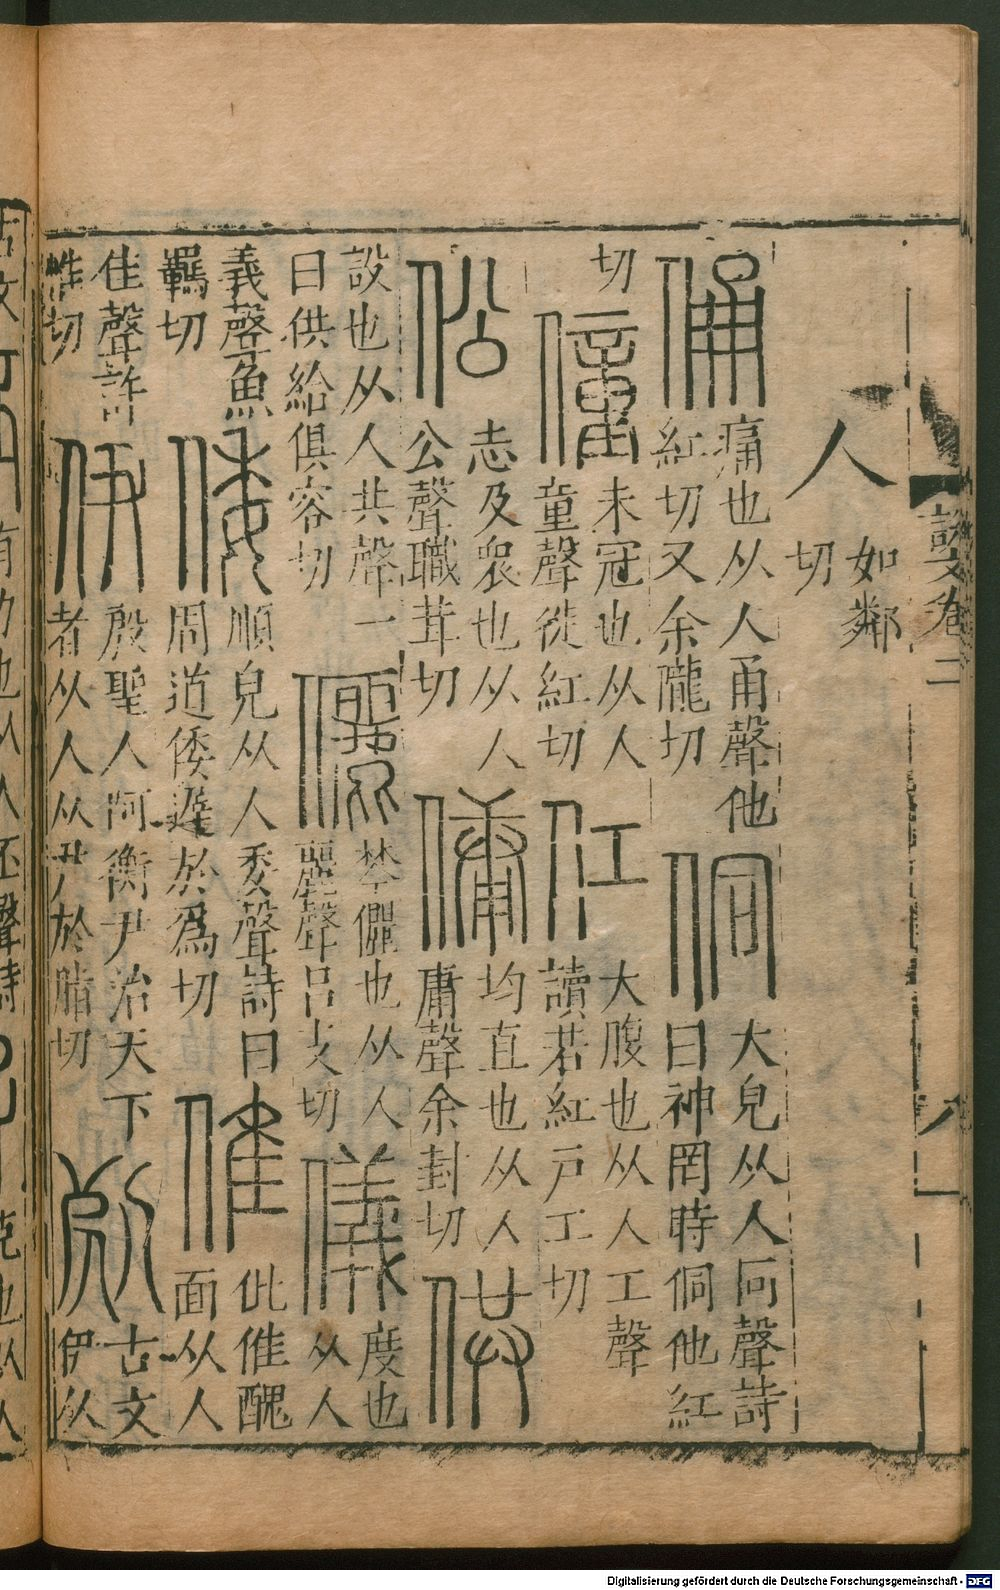 說文卷二
人
如鄰
切
俑
痛也从人甬聲他
紅切又余隴切
侗
大皃从人同聲詩
曰神罔時侗他紅
切
僮
未冠也从人
童聲徒紅切
仜
大腹也从人工聲
讀若紅戶工切
伀
志及衆也从人
公聲職茸切
傭
均直也从人
庸聲余封切
供
設也从人共聲一
曰供給俱容切
儷
棽儷也从人
麗聲呂支切
儀
度也
从人
義聲魚
羈切
倭
順皃从人委聲詩曰
周道倭遲於爲切
倠
仳倠醜
面从人
隹聲許
惟切
伊
殷聖人阿衡尹治天下
者从人从尹於脂切
古文
伊从
有力也从人丕聲詩